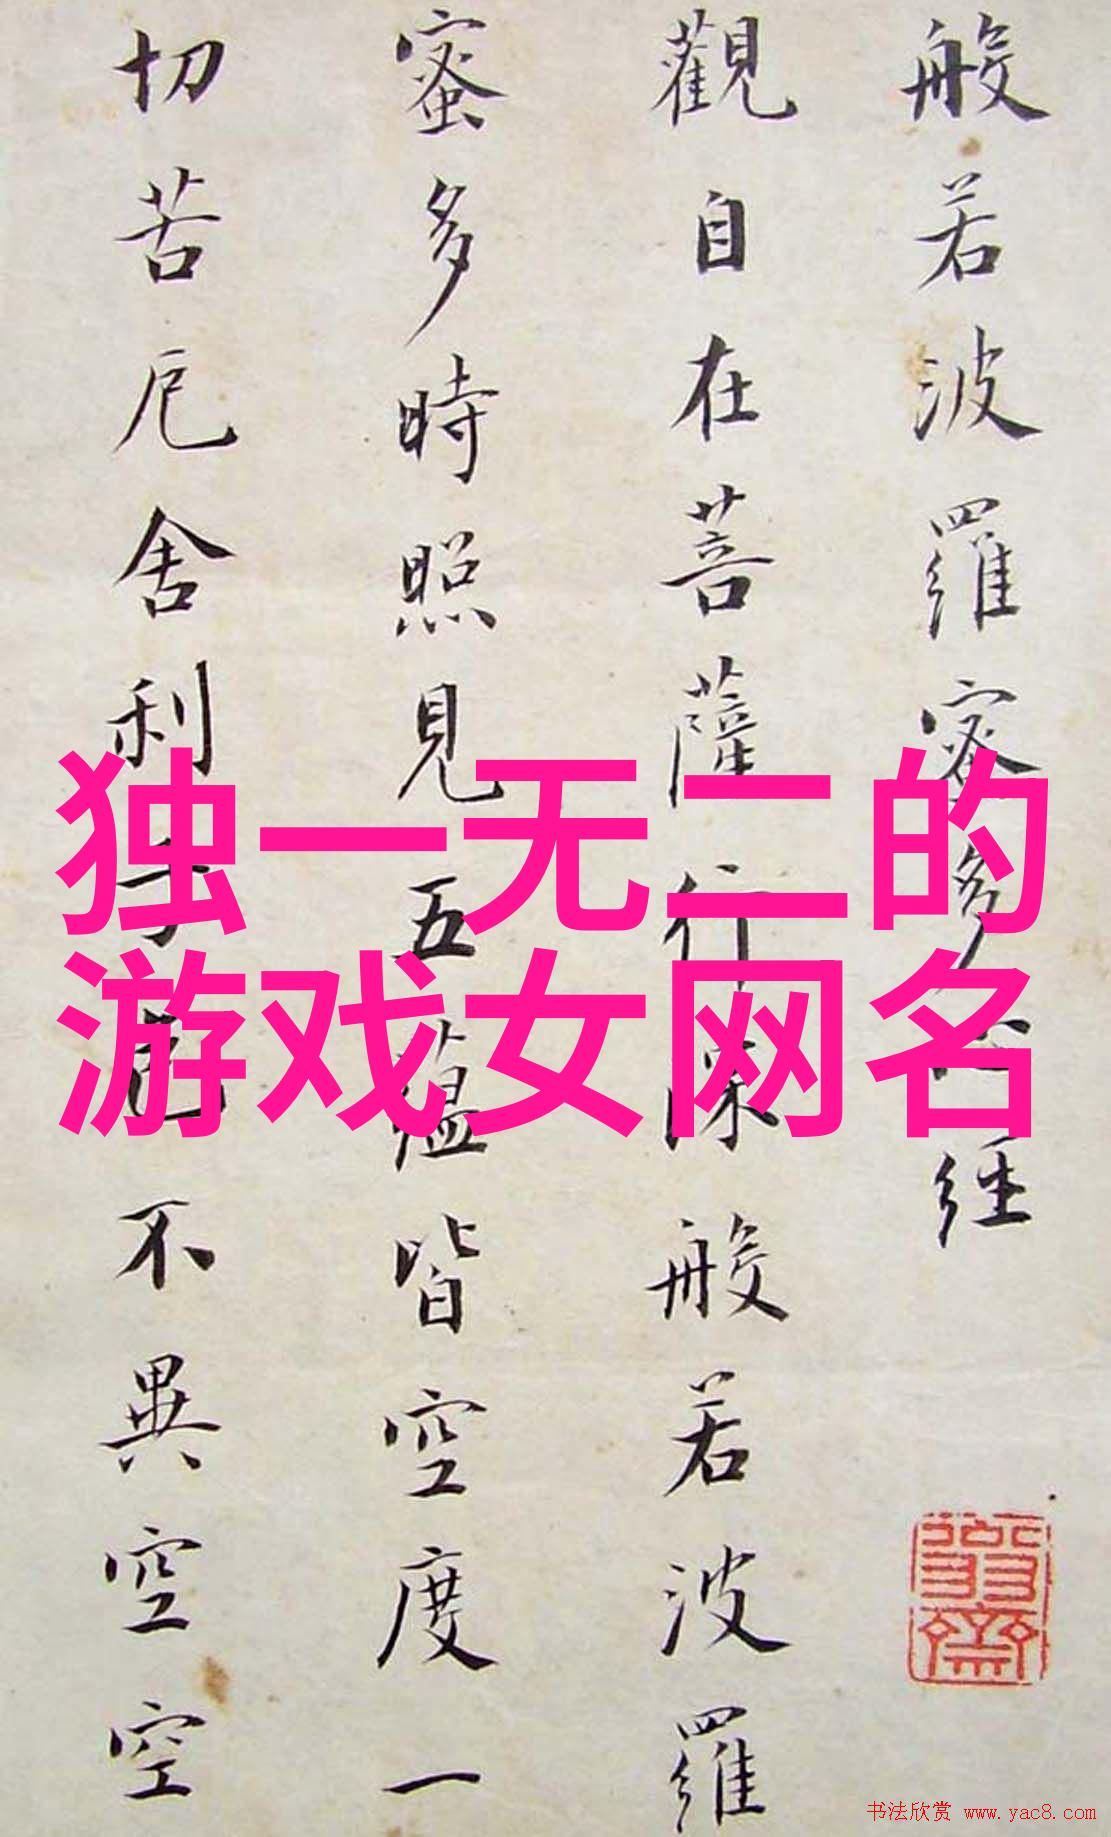 般若波羅蜜多心經
觀自在菩薩行深般若波羅
蜜多時照見五蘊皆空度一
切苦厄舍利子色不異空空
独一无二的
游戏女网名
书法欣赏 www.yac8.com